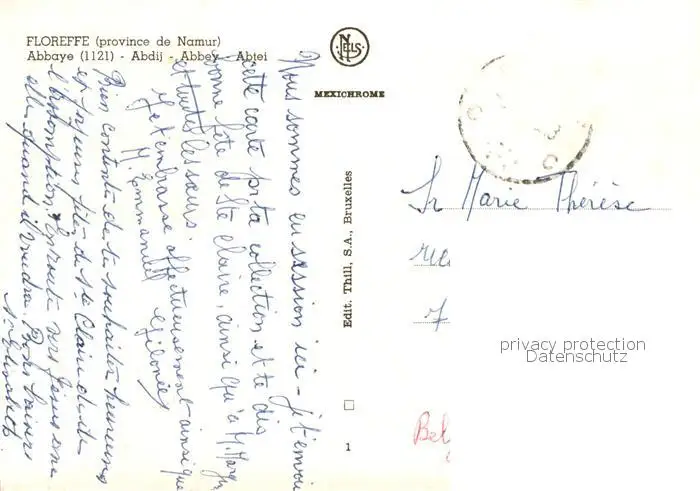 FLOREFFE (province de Namur)
Abbaye (1121) - Abdij - Abbey - Abtei
NELS
MEXICHROME
Edit. Thill, S.A., Bruxelles
1
Nous sommes en session ici - je t'envoie
cette carte pr ta collection et te dis
bonne fête de Ste Claire, ainsi qu'à M. Marg.
et toutes les sœurs.
Je t'embrasse affectueusement ainsi que
M. Emmanuel
Bien contente de te souhaiter heureuse
et joyeuse fête de Ste Claire et de
l'Assomption. En route vers Jésus
elle quand il voudra. Bons baisers
Sr Marie Thérèse
Bel
privacy protection
Datenschutz